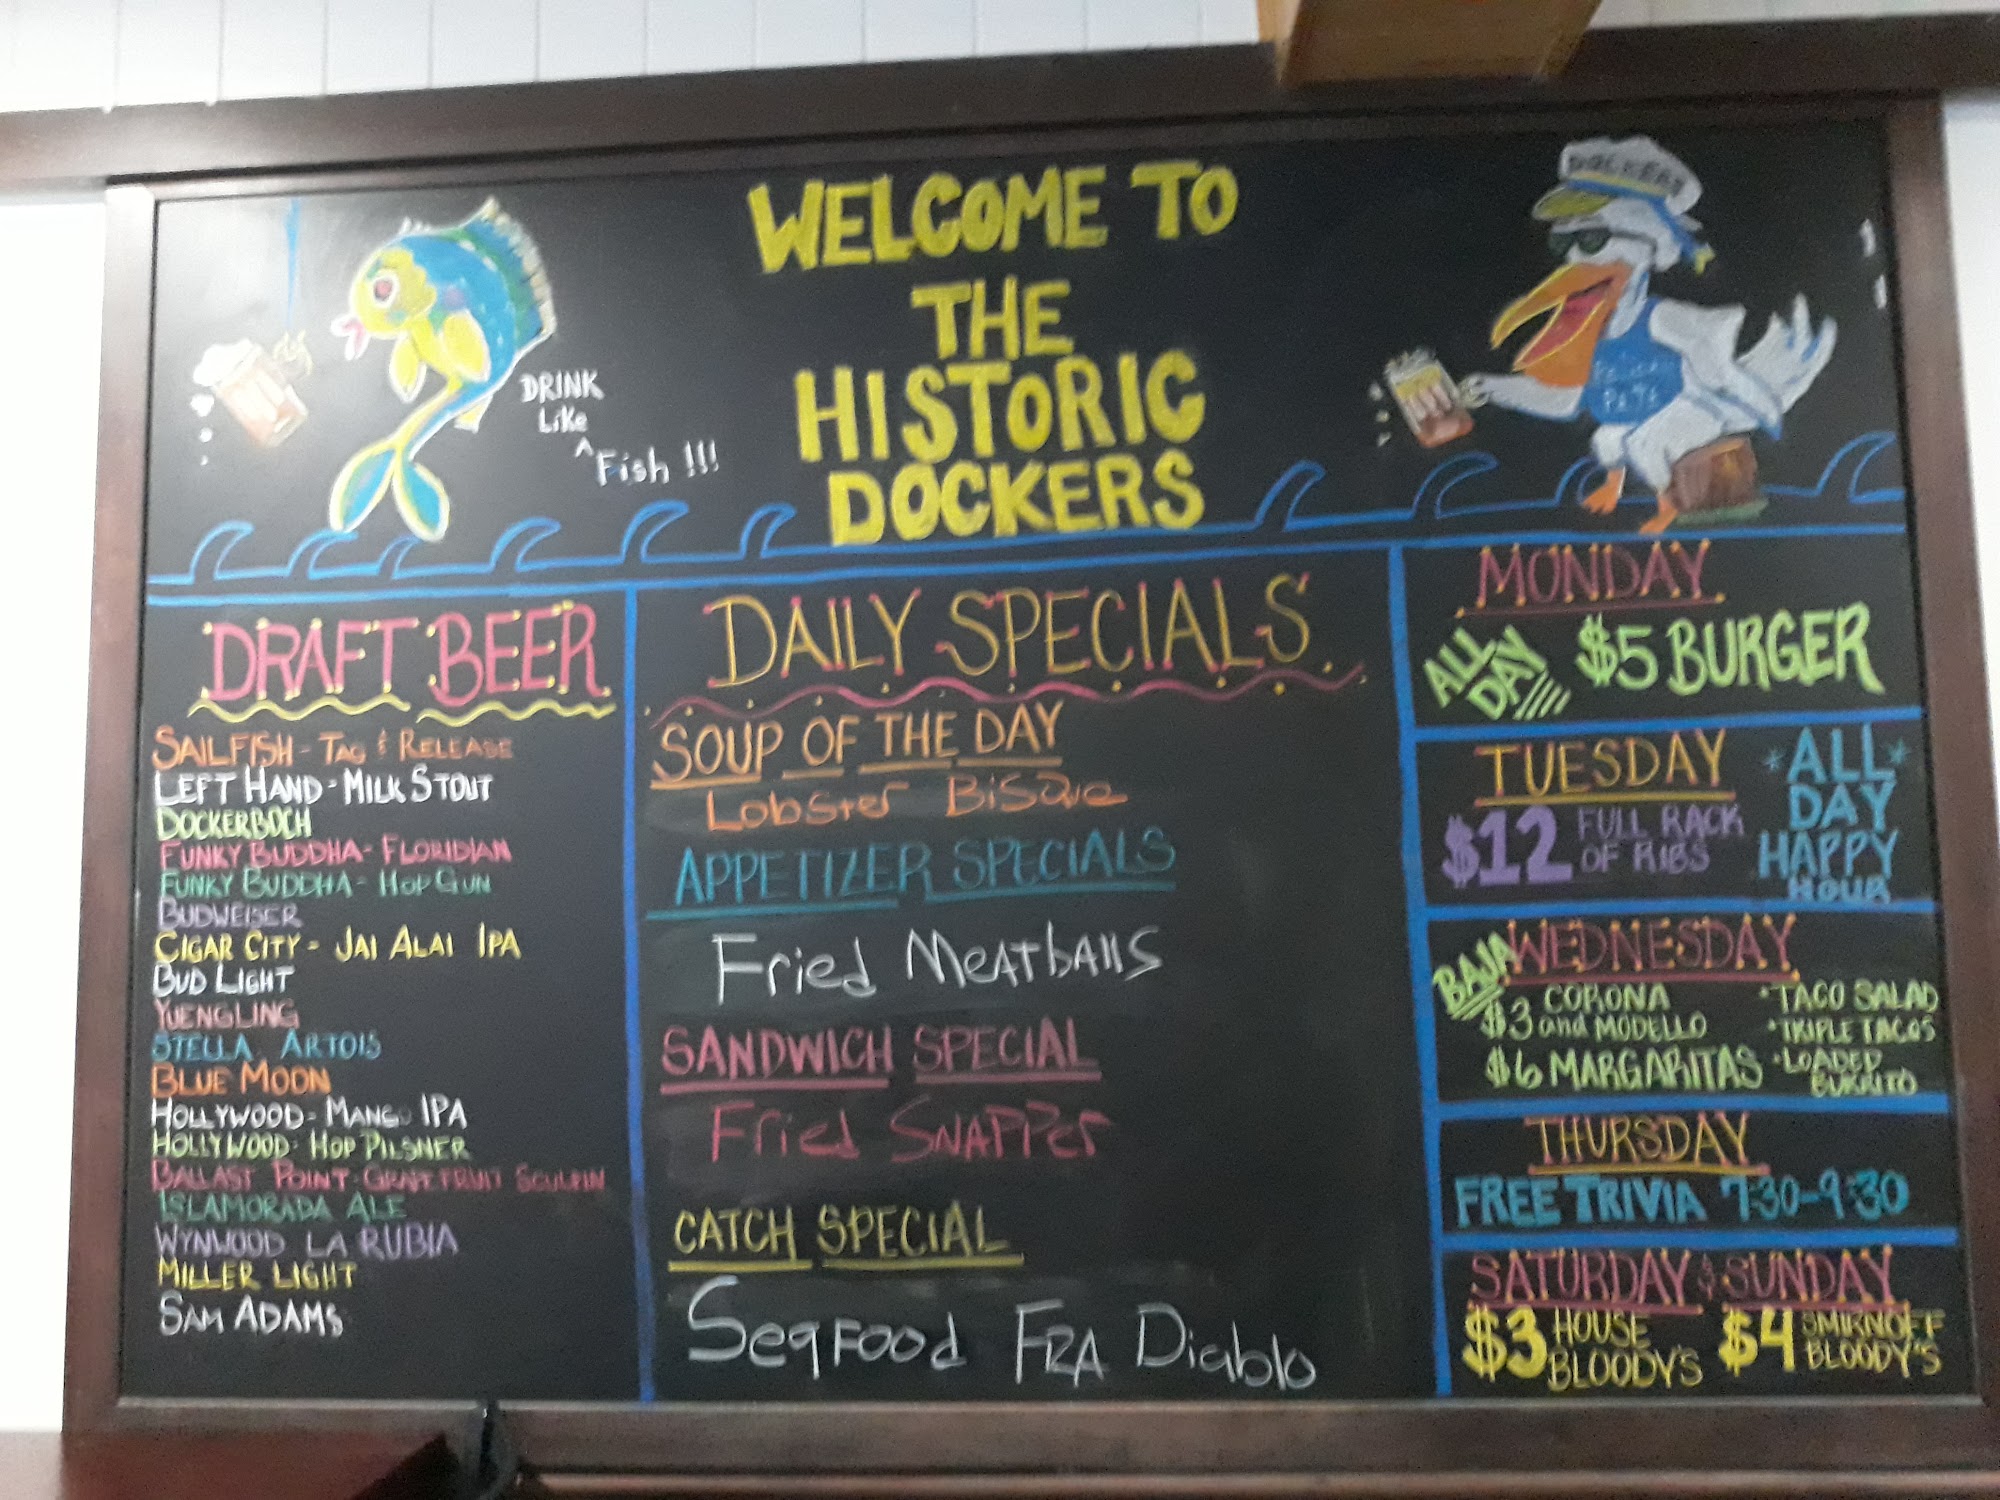 WELCOME TO
THE
HISTORIC
DOCKERS
DRINK
Like
^ Fish !!!
DOCKERS
PETE
DRAFT BEER
SAILFISH - TAG & RELEASE
LEFT HAND - MILK STOUT
DOCKERBOCH
FUNKY BUDDHA - FLORIDIAN
FUNKY BUDDHA - HOP GUN
BUDWEISER
CIGAR CITY - JAI ALAI IPA
BUD LIGHT
YUENGLING
STELLA ARTOIS
BLUE MOON
HOLLYWOOD - MANGO IPA
HOLLYWOOD - HOP PILSNER
BALLAST POINT - GRAPEFRUIT SCULPIN
ISLAMORADA ALE
WYNWOOD LA RUBIA
MILLER LIGHT
SAM ADAMS
DAILY SPECIALS
SOUP OF THE DAY
Lobster Bisque
APPETIZER SPECIALS
Fried Meatballs
SANDWICH SPECIAL
Fried Snapper
CATCH SPECIAL
Seafood FRA Diablo
MONDAY
ALL DAY $5 BURGER
TUESDAY
$12 FULL RACK
OF RIBS
*ALL*
DAY
HAPPY
HOUR
BAJA WEDNESDAY
$3 CORONA
and MODELLO
$6 MARGARITAS
• TACO SALAD
• TRIPLE TACOS
• LOADED
BURRITO
THURSDAY
FREE TRIVIA 7:30-9:30
SATURDAY & SUNDAY
$3 HOUSE
BLOODY'S
$4 SMIRNOFF
BLOODY'S